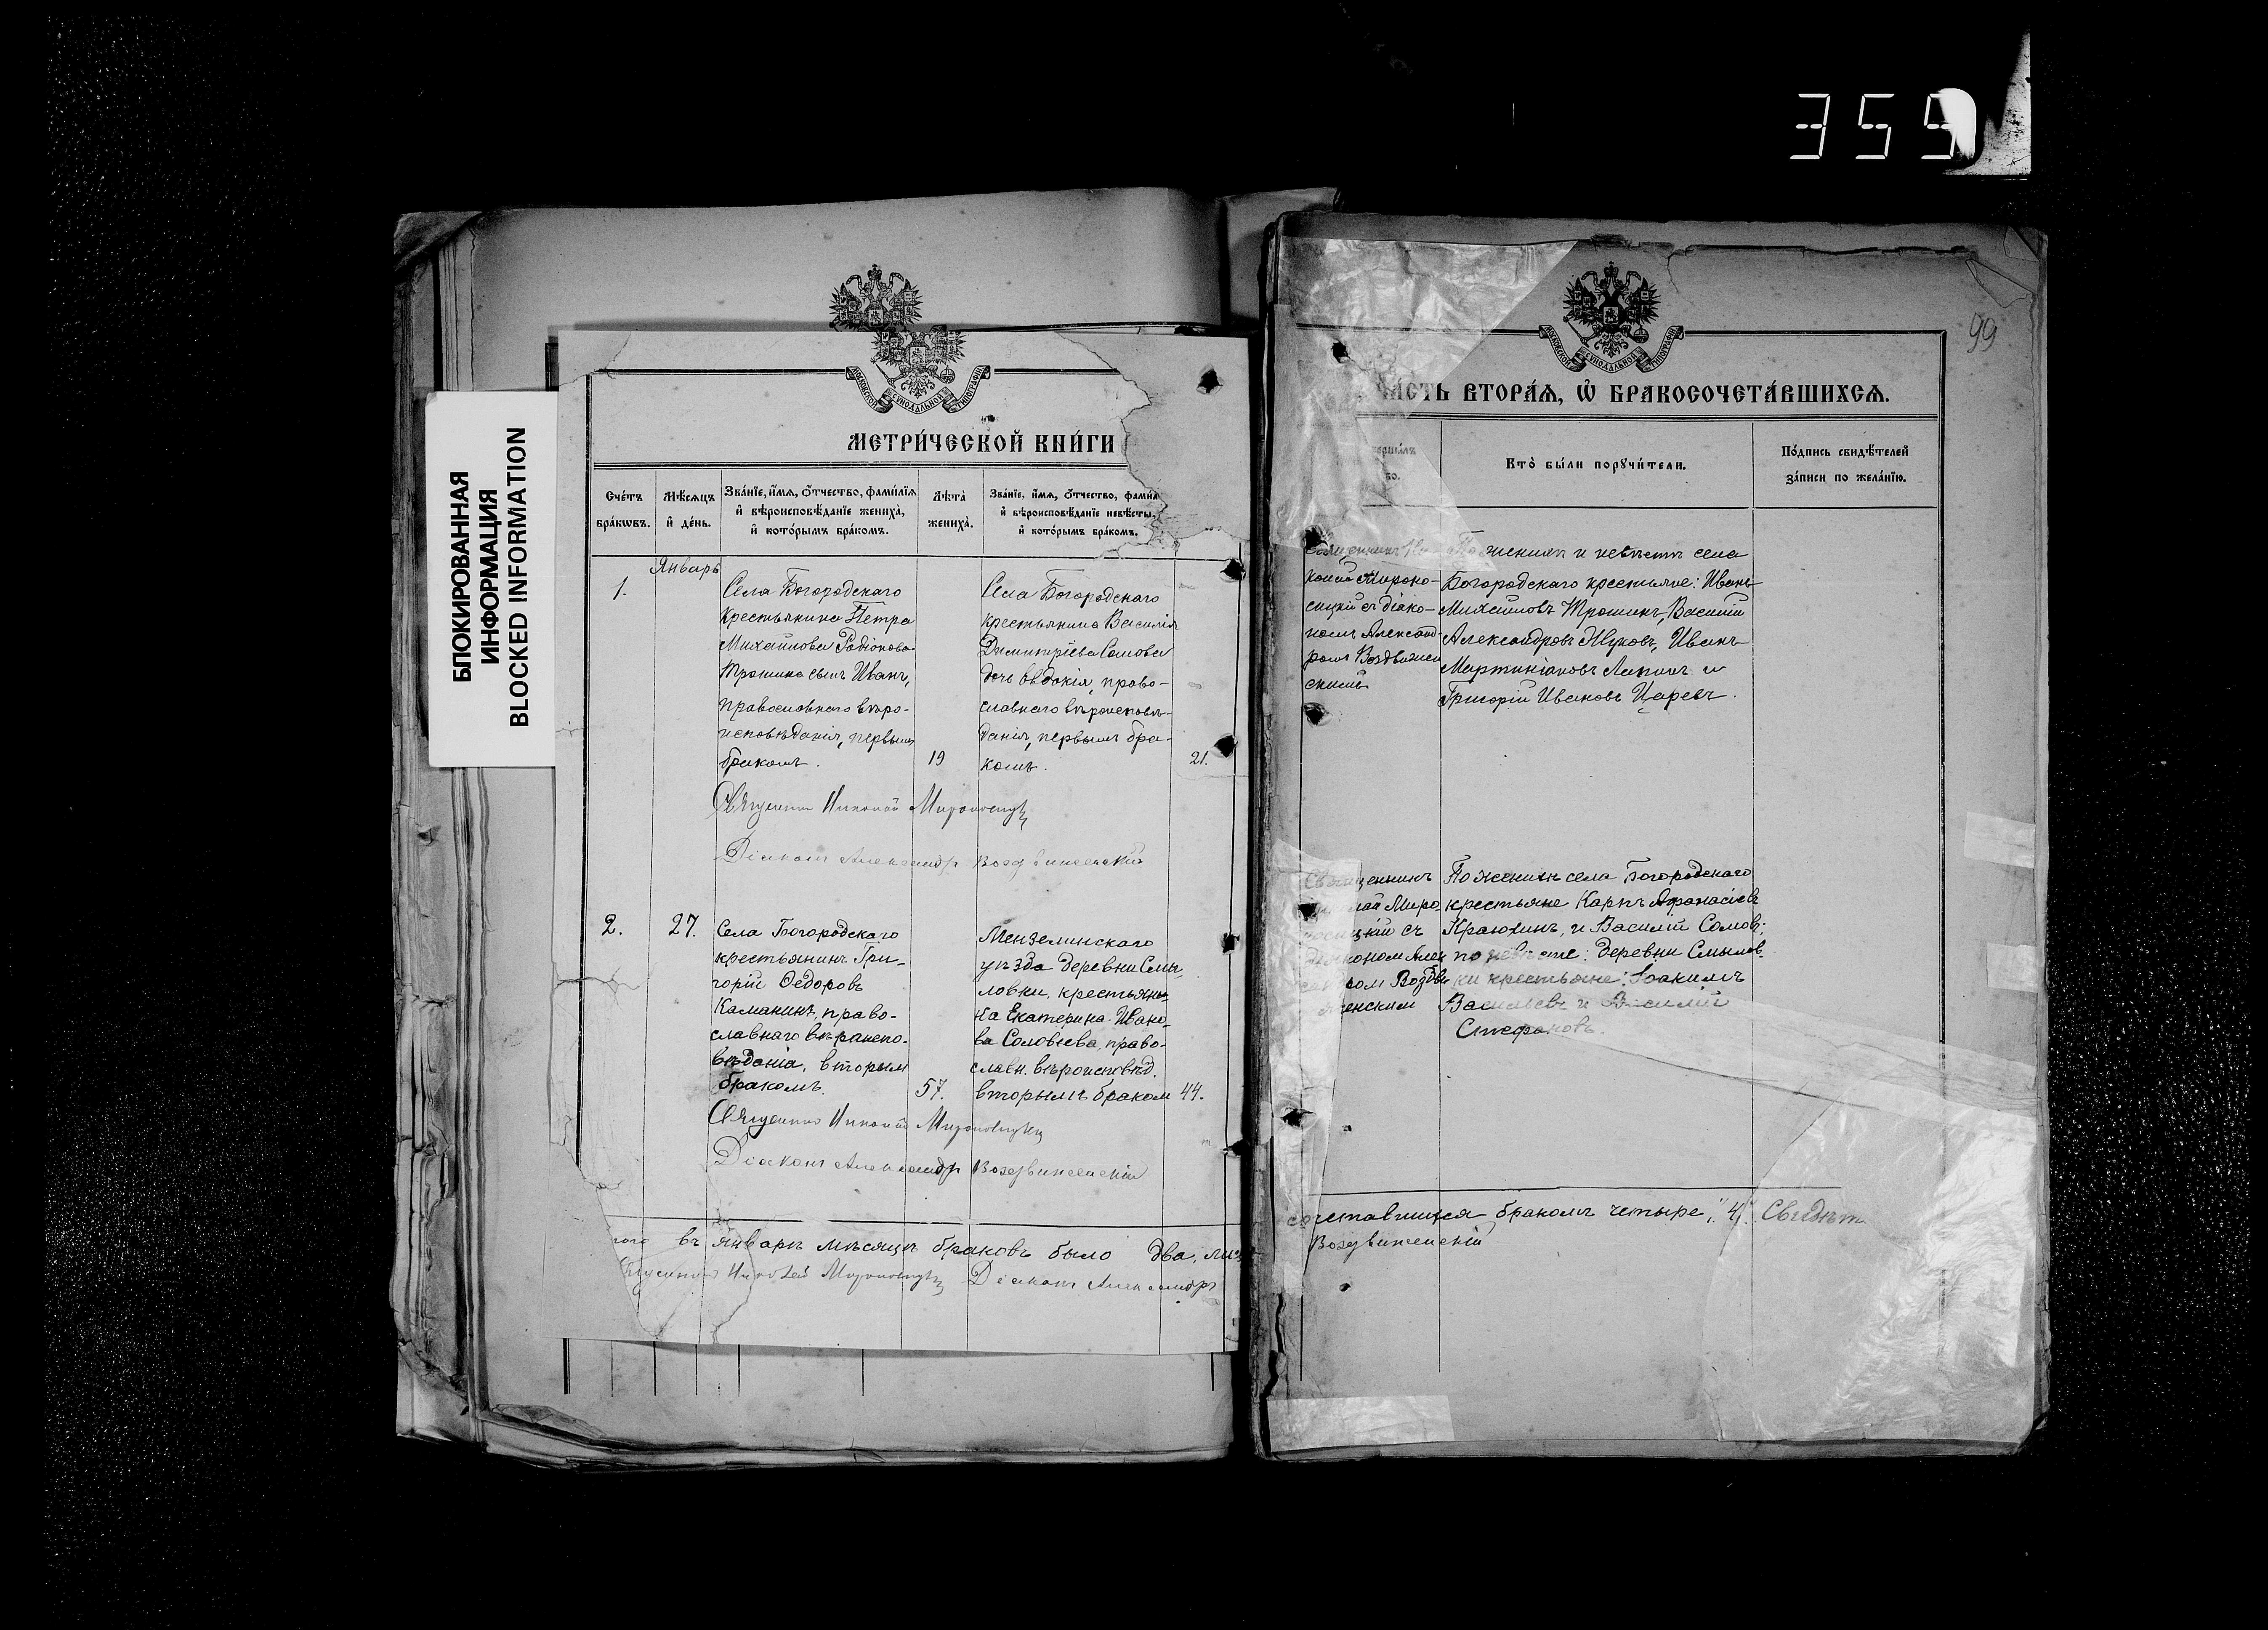 359
БЛОКИРОВАННАЯ
ИНФОРМАЦИЯ
BLOCKED INFORMATION
МОСКОВСКОЙ СѴНОДАЛЬНОЙ ТИПОГРАФІИ
МЕТРИ́ЧЕСКОЙ КНИ́ГИ
Сче́тъ
бра́кѡвъ.
Мѣ́сяцъ
и҆ де́нь.
Зва́нїе, и҆́мѧ, ѻ҆́тчество, фами́лїѧ
и҆ вѣроисповѣ́данїе жениха̀,
и҆ кото́рымъ бра́комъ.
Лѣта̀
жениха̀.
Зва́нїе, и҆́мѧ, ѻ҆́тчество, фами́л
и҆ вѣроисповѣ́данїе невѣ́сты,
и҆ кото́рымъ бра́комъ.
Январь
1.
Села Богородскаго
крестьянина Петра
Михайлова Радіонова
Трошина сынъ Иванъ,
православнаго вѣро-
исповѣданія, первымъ
бракомъ.
19
Села Богородскаго
крестьянина Василія
Димитріева Сомова
дочь Евдокія, право-
славнаго вѣроисповѣ-
данія, первымъ бра-
комъ.
21.
Священникъ Николай Мироносицкій
Діаконъ Александръ Воздвиженскій
2.
27.
Села Богородскаго
крестьянинъ Гри-
горій Ѳедоровъ
Каманинъ, право-
славнаго вѣроиспо-
вѣданія, вторымъ
бракомъ.
57.
Мензелинскаго
уѣзда деревни Смы-
ловки, крестьян-
ка Екатерина Ивано-
ва Соловьева, право-
славн. вѣроисповѣд.
вторымъ браком
44.
Священникъ Николай Мироносицкій
Діаконъ Александръ Воздвиженскій
въ Январѣ мѣсяцѣ браковъ было два, лицъ
Николай Мироносицкій Діаконъ Александръ
99
МОСКОВСКОЙ СѴНОДАЛЬНОЙ ТИПОГРАФІИ
ЧАСТЬ ВТОРА́Ѧ, Ѡ҆ БРАКОСОЧЕТА́ВШИХСѦ.
Кто̀ бы́ли порꙋчи́тели.
По́дпись свидѣ́телей
за́писи по жела́нїю.
Священникъ Ни-
колай Мироно-
сицкій съ діако-
номъ Александ-
ромъ Воздвижен
скимъ
По женихѣ и невѣстѣ села
Богородскаго крестьяне: Иванъ
Михайловъ Трошинъ, Василій
Александровъ Жуковъ, Иванъ
Мартиніановъ Лапинъ и
Григорій Ивановъ Царевъ.
Священникъ
Миро
съ
діакономъ Алек
ром Воздви
женским
По женихѣ села Богородскаго
крестьяне Карпъ Аѳанасіевъ
Краюхинъ, и Василій Сомовъ;
по невѣстѣ: деревни Смылов
ки крестьяне: Іоакимъ
Васильевъ и Василій
Стефановъ.
сочетавшихся бракомъ четыре, "4". Свидѣт.
Воздвиженскій